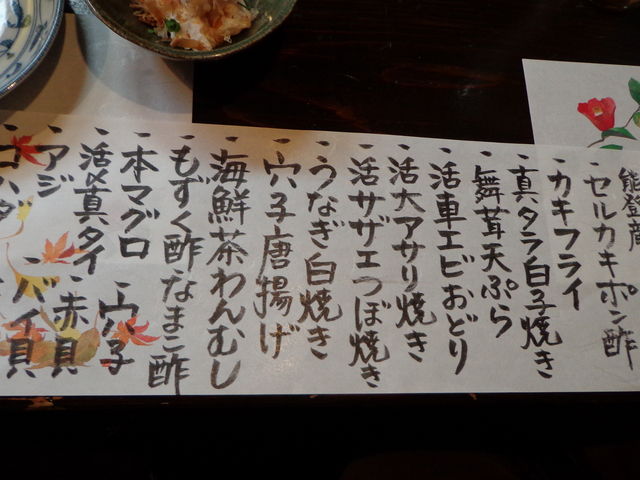 能登産
・セルカキポン酢
・カキフライ
・真タラ白子焼き
・舞茸天ぷら
・活車エビおどり
・活大アサリ焼き
・活サザエつぼ焼き
・うなぎ白焼き
・穴子唐揚げ
・海鮮茶わんむし
・もずく酢
・なまこ酢
・本マグロ
・穴子
・活〆真タイ
・赤貝
・アジ
・バイ貝
・コハダ